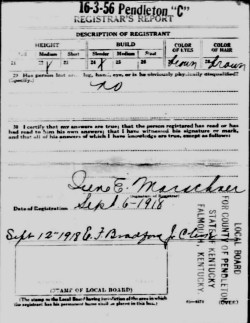 16-3-56 Pendleton "C"
REGISTRAR'S REPORT
DESCRIPTION OF REGISTRANT
HEIGHT BUILD COLOR OF EYES COLOR OF HAIR
Tall Medium Short Slender Medium Stout
21 22 x 23 24 x 25 26 27 Brown 28 Brown
29 Has person lost arm, leg, hand, eye, or is he obviously physically disqualified?
(Specify.)
no
30 I certify that my answers are true; that the person registered has read or has
had read to him his own answers; that I have witnessed his signature or mark,
and that all of his answers of which I have knowledge are true, except as follows:
Irene E. Marschner
Date of Registration Sept 6-1918
Sept 12-1918 E. F. Bradford Jr. Clerk
LOCAL BOARD
FOR COUNTY OF PENDLETON
STATE OF KENTUCKY
FALMOUTH, KENTUCKY.
(STAMP OF LOCAL BOARD)
(The stamp of the Local Board having jurisdiction of the area in which
the registrant has his permanent home shall be placed in this box.)
(OVER)